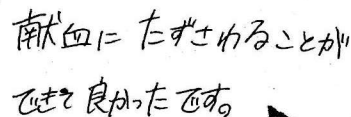 献血に たずさわることが
できて 良かったです。